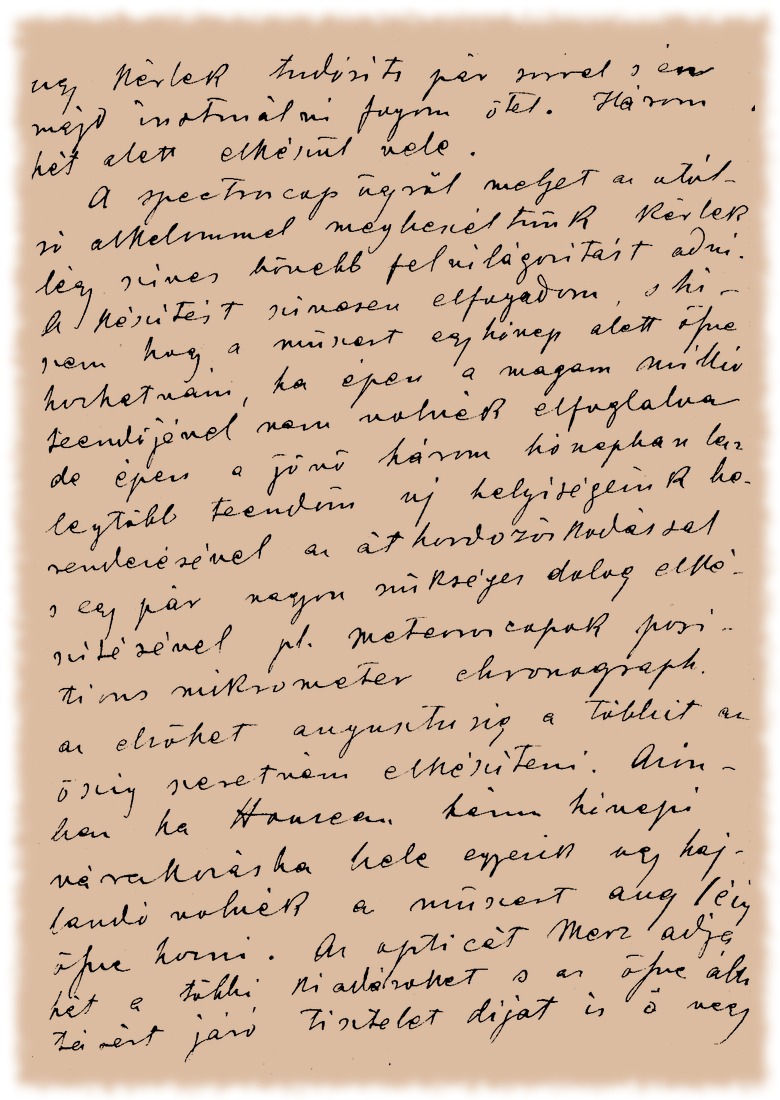 ugy kérlek tudósíts pár sorral s én
majd instruálni fogom őtet. Három
hét alatt elkészül vele.
A spectroscop ügyről melyet az utól-
só alkalommal megbeszéltünk kérlek
légy szives bővebb felvilágositást adni.
A készitést szivesen elfogadom, s hi-
szem hogy a műszert egy hónap alatt öszve
hozhatnám, ha épen a magam millió
teendőjével nem volnék elfoglalva
de épen a jövő három hónapban lesz
legtöbb teendőm uj helyiségeink be-
rendezésével az áthordozóskodással
s egy pár nagyon szükséges dolog elké-
szitésével pl. meteoroscopok posi-
tions mikrometer chronograph.
az elsőket augusztusig a többit az
őszig szeretném elkésziteni. Azon-
ban ha Houzeau három hónapi
várakozásba bele egyezik ugy haj-
landó volnék a műszert aug
öszve hozni. Az opticát Merz adja
hát a többi kiadásokat s az öszve álli
tásért járó tisztelet dijat is ő vagy